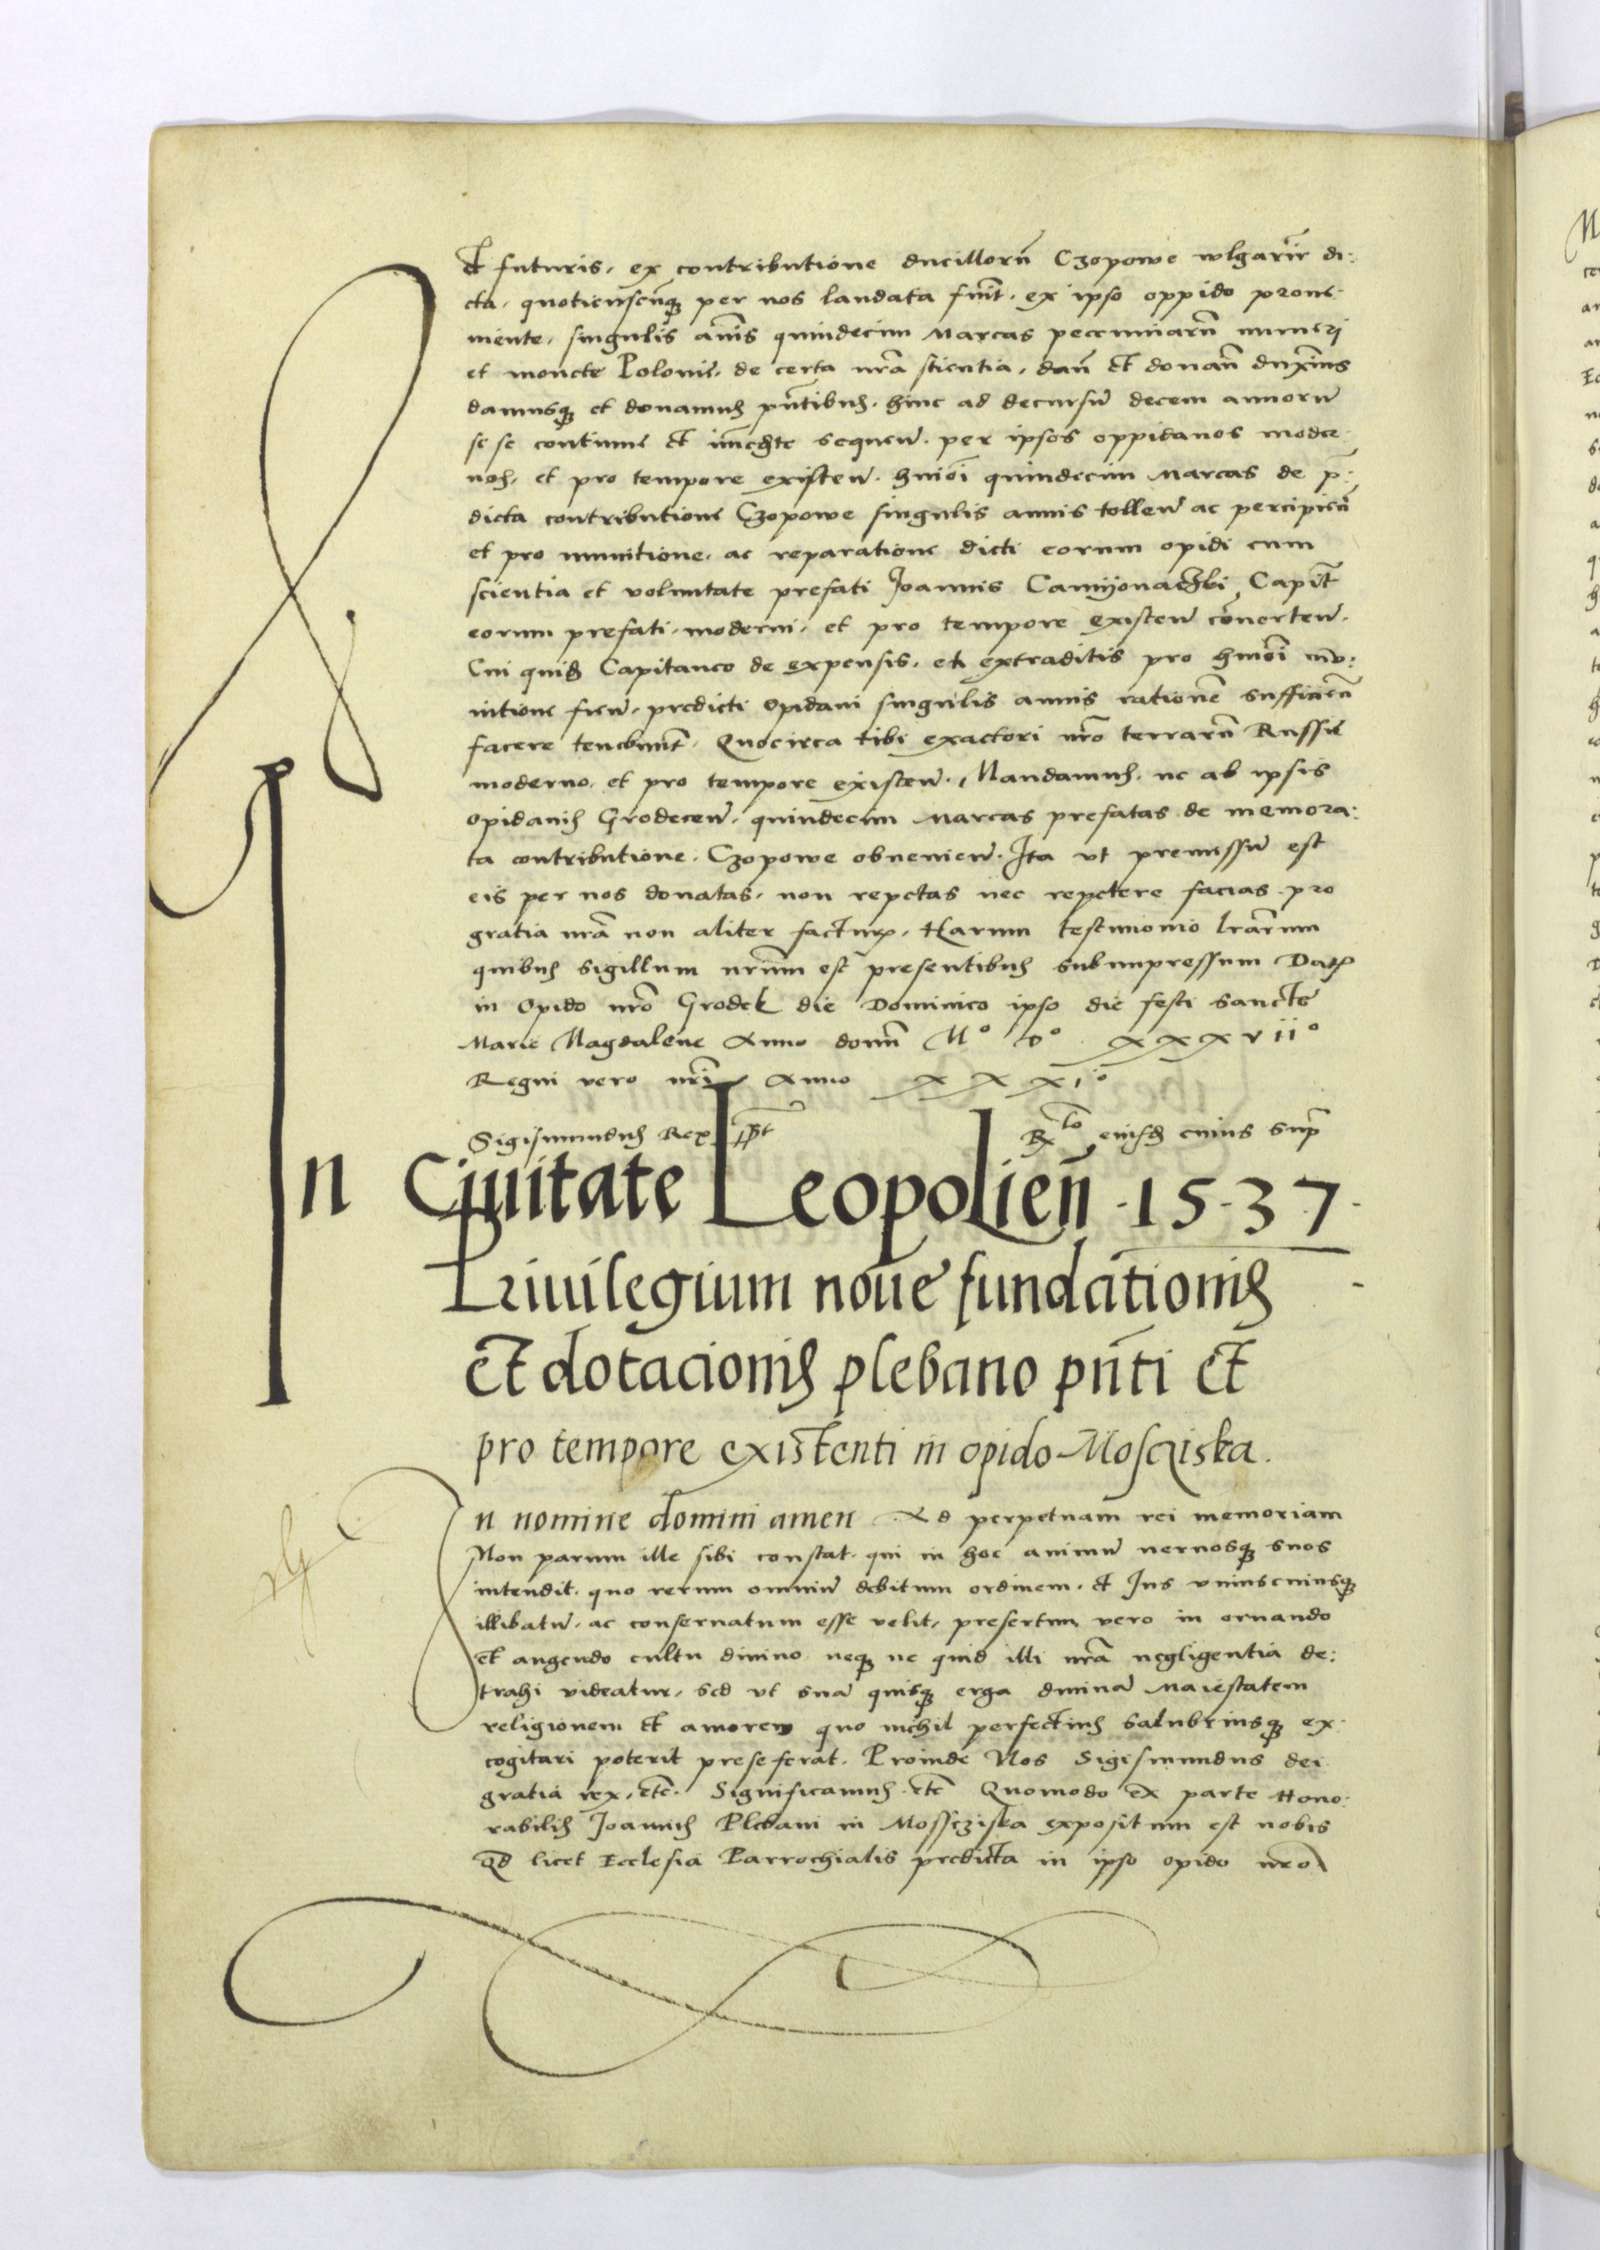 et futuris, ex contributione ducillorū Czopowe wlgarīr di:
cta, quotienscūq per nos laudata fuīt, ex ipso oppido proue:
niente, singulis ānis quindecim Marcas peccuniarū numeri
et monete Polonie, de certa nrā scientia, danđ et donanđ duximus
damusq et donamus pntibus, hinc ad decursū decem annorū
se se continue et immedte sequeñ, per ipsos oppidanos moder
nos, et pro tempore existeñ, hmōi quindecim Marcas de p:
dicta contributione Czopowe singulis annis tolleñ ac percipieñ
et pro munitione, ac reparatione dicti eorum opidi cum
scientia et voluntate prefati Joannis Camyonaczki, Capit
eorum prefati, moderni, et pro tempore existeñ cōuerteñ.
Cui quid Capitaneo de expensis, et extraditis pro hmōi mu:
nitione fieñ, predicti opidani singulis annis rationē sufficieñ
facere tenebunt. Quocirca tibi exactori nrō terrarū Russie
moderno, et pro tempore existeñ, Mandamus, ne ab ipsis
opidanis Grodeceñ, quindecim Marcas prefatas de memora:
ta contributione, Czopowe obuenieñ, Ita vt premissū est
eis per nos donatas, non repetas nec repetere facias pro
gratia nrā non aliter facturus, Harum testimonio lrārum
quibus sigillum nrūm est presentibus subimpressum Dat
in Opido nrō Grodek die Dominico ipso die festi sancte
Marie Magdalene Anno domi M° D° XXXvii°
Regni vero nrī Anno XXXi°
Sigismundus Rex sst
Rto eiusd cuius supr
In Ciuitate Leopolieñ 1537
Priuilegium noue fundationis
et dotacionis plebano pnti et
pro tempore existenti in opido Mosciska.
In nomine domini amen Ad perpetuam rei memoriam
Non parum ille sibi constat, qui in hoc animū neruosq suos
intendit, quo rerum omniū debitum ordinem, et Jus vniuscuiusq
illibatū, ac conseruatum esse velit, presertim vero in ornando
et augendo cultu diuino neq ne quid illi nrā negligentia de:
trahi videatur, sed vt suā quisq erga diuinā Maiestatem
religionem et amorem quo nichil perfectius salubriusq ex:
cogitari poterit prese ferat. Proinde Nos Sigismundus dei
gratia rex, etc. Significamus etc Quomodo ex parte Hono:
rabilis Joannis Plebani in Mossciska expositum est nobis
Qd licet Ecclesia Parrochialis predicta in ipso opido nrō